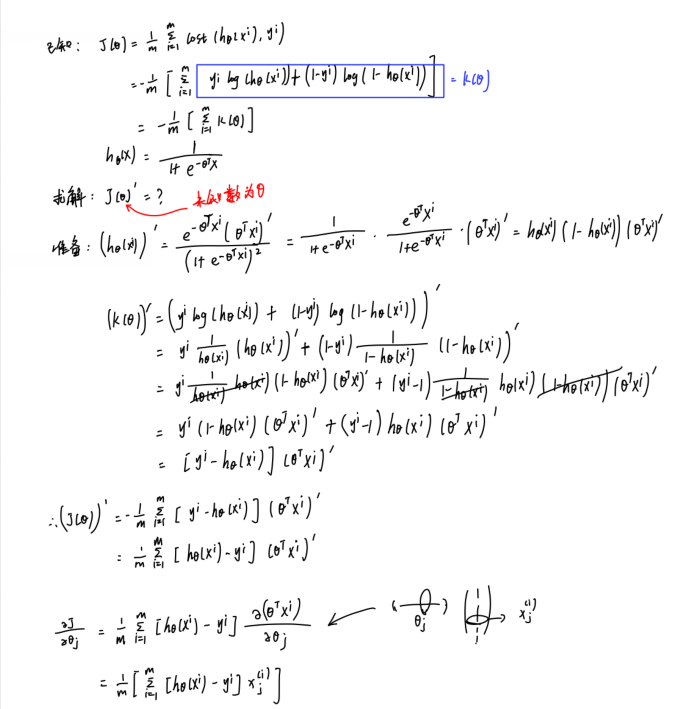 已知: J(θ) = 1/m Σ_{i=1}^{m} cost (hθ(x^i), y^i)
= -1/m [ Σ_{i=1}^{m} y^i log (hθ(x^i)) + (1-y^i) log (1-hθ(x^i)) ] = k(θ)
= -1/m [ Σ_{i=1}^{m} k(θ) ]
hθ(x) = 1/(1+e^{-θ^T x})
求解: J(θ)' = ? 未知数为θ
准备: (hθ(x^i))' = e^{-θ^T x^i} (θ^T x^i)' / (1+e^{-θ^T x^i})^2 = 1/(1+e^{-θ^T x^i}) · e^{-θ^T x^i}/(1+e^{-θ^T x^i}) · (θ^T x^i)' = hθ(x^i) (1-hθ(x^i)) (θ^T x^i)'
(k(θ))' = (y^i log (hθ(x^i)) + (1-y^i) log (1-hθ(x^i)))'
= y^i 1/hθ(x^i) (hθ(x^i))' + (1-y^i) 1/(1-hθ(x^i)) (1-hθ(x^i))'
= y^i 1/hθ(x^i) hθ(x^i) (1-hθ(x^i)) (θ^T x^i)' + (y^i-1) 1/(1-hθ(x^i)) hθ(x^i) (1-hθ(x^i)) (θ^T x^i)'
= y^i (1-hθ(x^i)) (θ^T x^i)' + (y^i-1) hθ(x^i) (θ^T x^i)'
= [y^i-hθ(x^i)] (θ^T x^i)'
∴ (J(θ))' = -1/m Σ_{i=1}^{m} [y^i-hθ(x^i)] (θ^T x^i)'
= 1/m Σ_{i=1}^{m} [hθ(x^i)-y^i] (θ^T x^i)'
∂J/∂θ_j = 1/m Σ_{i=1}^{m} [hθ(x^i)-y^i] ∂(θ^T x^i)/∂θ_j
θ_j
x_j^{(i)}
= 1/m [ Σ_{i=1}^{m} [hθ(x^i)-y^i] x_j^{(i)} ]